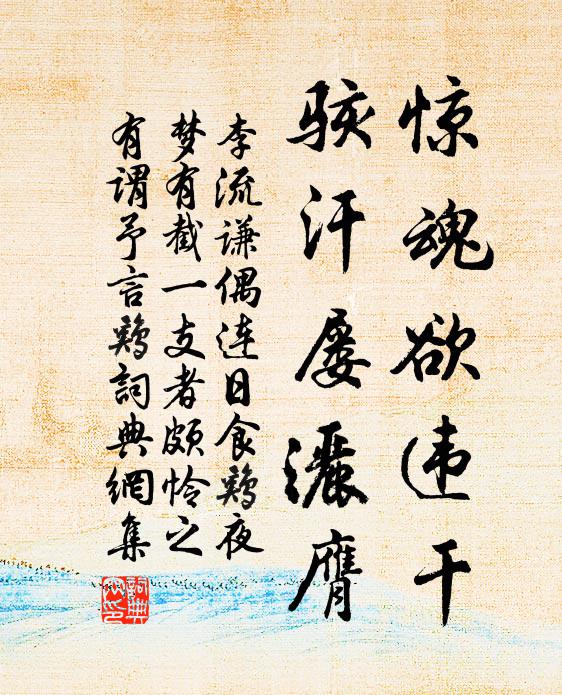 惊魂欲违干
骇汗屡洒膺
李流谦偶连日食鸡夜
梦有截一支者颇怜之
有谓予言鸡詞典網集
詞典